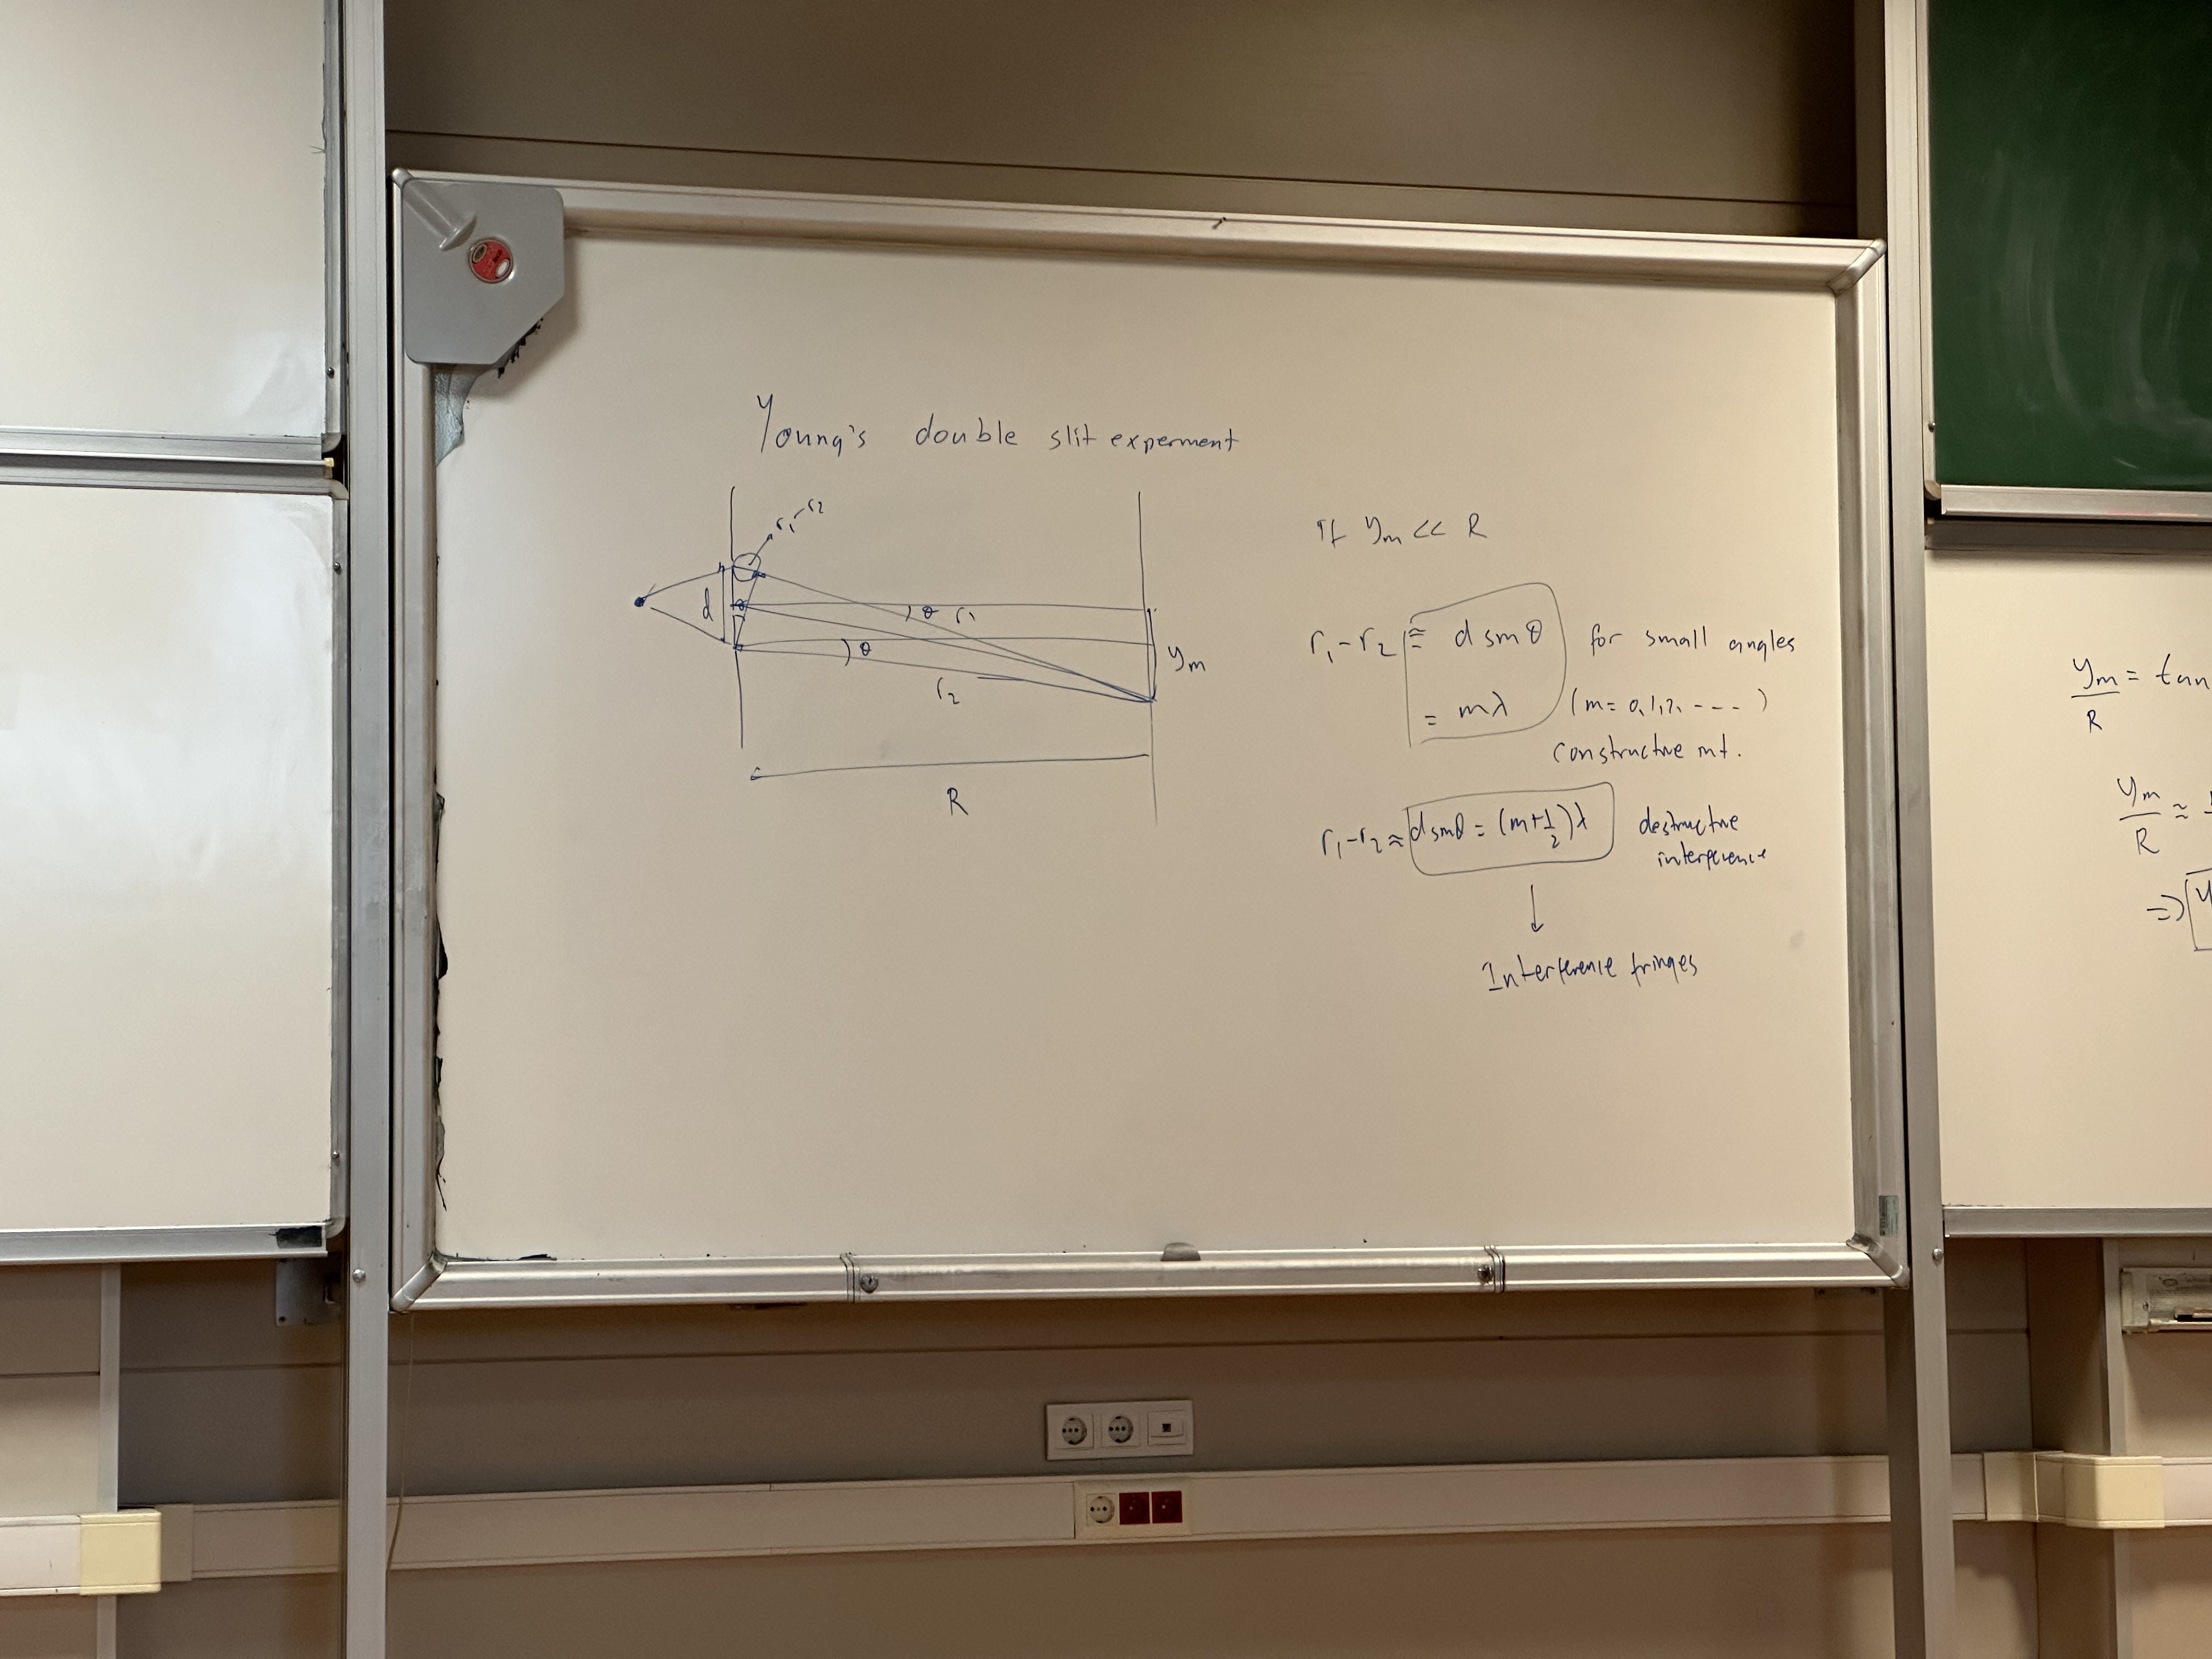 Young's double slit experment
r₁-r₂
d
θ
θ r₁
θ
r₂
yₘ
R
If yₘ << R
r₁-r₂ ≅ d sinθ for small angles
= mλ (m = 0,1,2, ----)
constructive int.
r₁-r₂ ≈ d sinθ = (m+1/2)λ destructive
interference
↓
Interference fringes
yₘ/R = tan
yₘ/R ≈
⇒ y